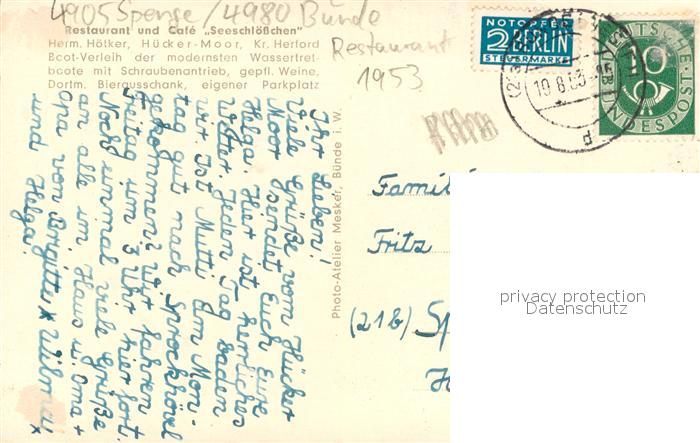 4905 Spenge / 4980 Bünde
Restaurant und Café „Seeschlößchen"
Herm. Hötker, Hücker-Moor, Kr. Herford
Boot-Verleih der modernsten Wassertret-
boote mit Schraubenantrieb, gepfl. Weine,
Dortm. Bierausschank, eigener Parkplatz
Restaurant
1953
NOTOPFER
2 BERLIN
STEUERMARKE
10.8.53
d
DEUTSCHE
10
BUNDESPOST
Ihr Lieben!
Viele Grüße vom Hücker
Moor sendet Euch Eure
Helga. Hier ist herrliches
Wetter. Jeden Tag baden
wir. Ist Mutti am Mon-
tag gut nach Sprockhövel
gekommen? Wir fahren
Freitag um 3 Uhr hier fort.
Noch einmal viele Grüße
an alle im Haus u. Oma +
Opa von Brigitte, Wilma,
und Helga.
Photo-Atelier Mesker, Bünde i. W.
Famil
Fritz
(21b) Sp
privacy protection
Datenschutz